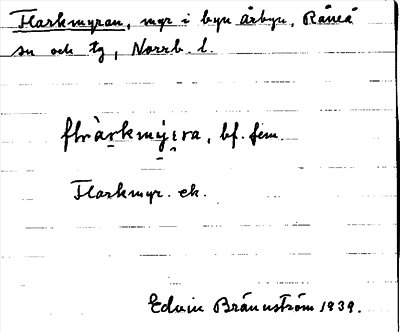 Flarkmyran, myr i byn Årbyn, Råneå
sn och tg, Norrb. l.
bf. fem.
Flarkmyr. ek.
Edvin Brännström 1939.